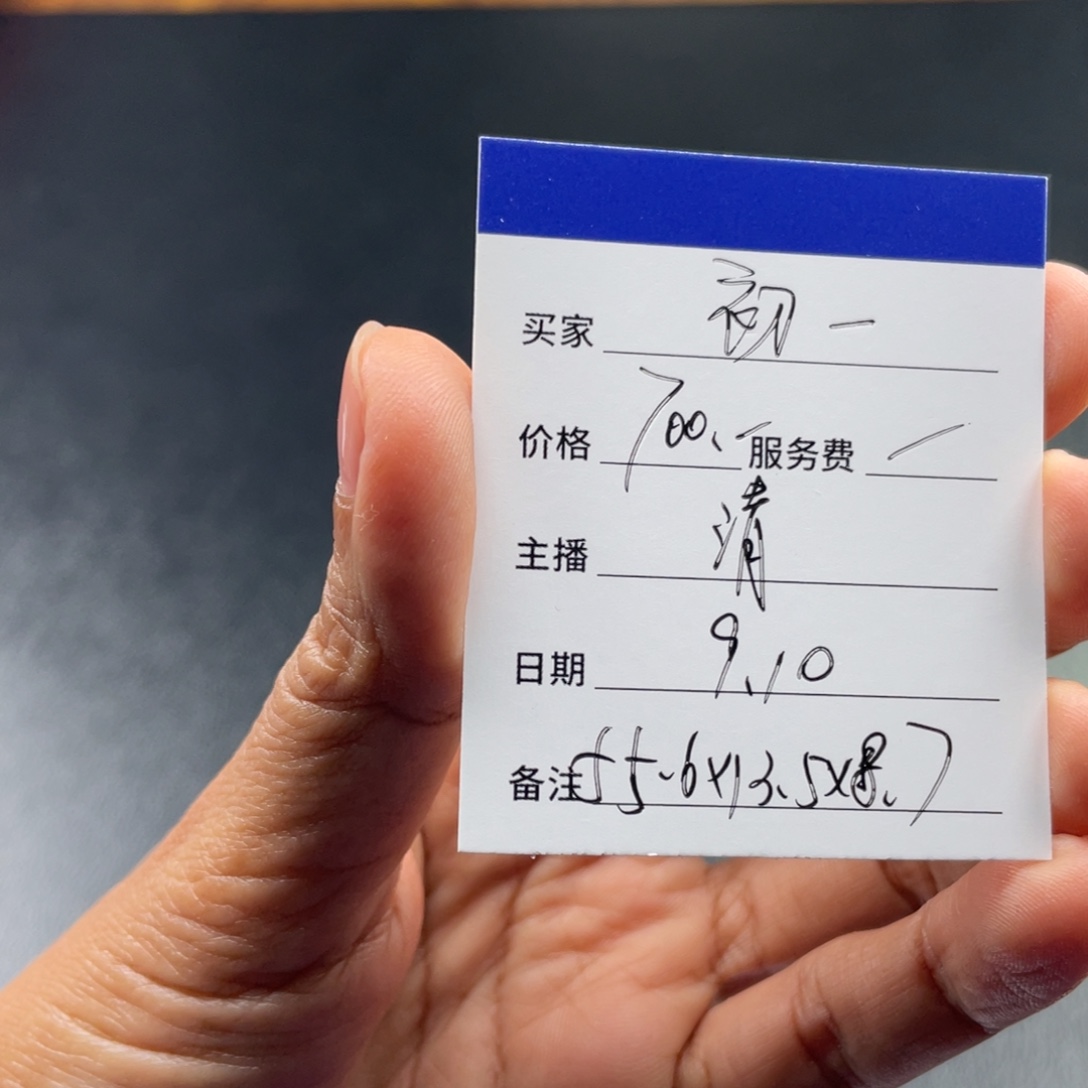 买家 初一
价格 700.- 服务费 /
主播 清
日期 9.10
备注 55.6x13.5x8.7